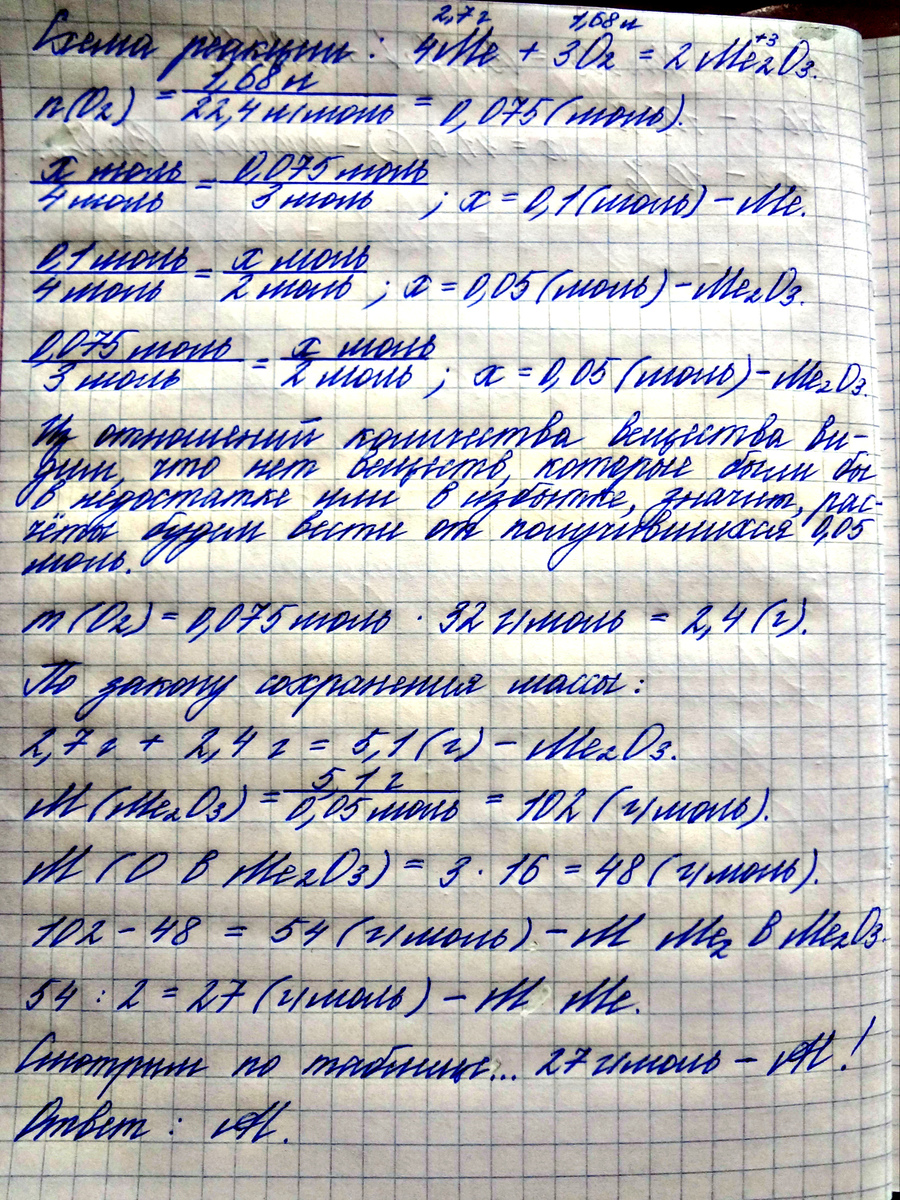 2,7 г 1,68 л
Схема реакции: 4Me + 3O₂ = 2Me₂⁺³O₃.
n(O₂) = 1,68 л / 22,4 л/моль = 0,075 (моль).
x моль / 4 моль = 0,075 моль / 3 моль ; x = 0,1 (моль) – Me.
0,1 моль / 4 моль = x моль / 2 моль ; x = 0,05 (моль) – Me₂O₃.
0,075 моль / 3 моль = x моль / 2 моль ; x = 0,05 (моль) – Me₂O₃.
Из отношений количества вещества ви-
дим, что нет веществ, которые были бы
в недостатке или в избытке, значит, рас-
чёты будем вести от получившихся 0,05
моль.
m(O₂) = 0,075 моль · 32 г/моль = 2,4 (г).
По закону сохранения массы:
2,7 г + 2,4 г = 5,1 (г) – Me₂O₃.
M(Me₂O₃) = 5,1 г / 0,05 моль = 102 (г/моль).
M(O в Me₂O₃) = 3 · 16 = 48 (г/моль).
102 – 48 = 54 (г/моль) – M Me₂ в Me₂O₃.
54 : 2 = 27 (г/моль) – M Me.
Смотрим по таблице... 27 г/моль – Al!
Ответ: Al.